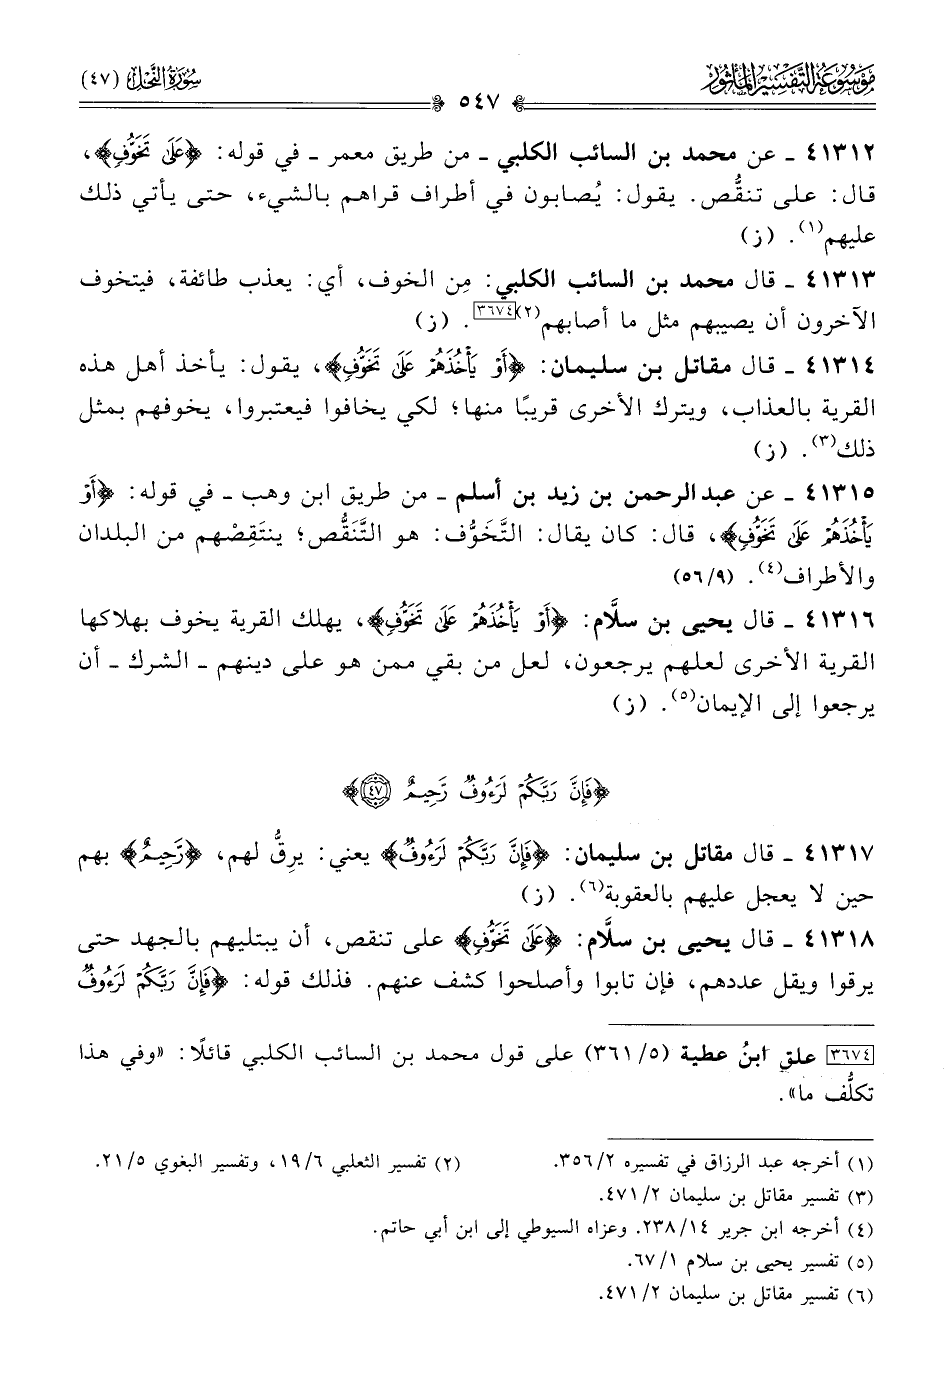 مَوْسُوعَة التَّفْسِير المَأْثُور
سُورَةُ النَّحْلِ (٤٧)
٥٤٧
٤١٣١٢ ـ عن محمد بن السائب الكلبي ـ من طريق معمر ـ في قوله: ﴿عَلَىٰ تَخَوُّفٍ﴾،
قال: على تنقُّص. يقول: يُصابون في أطراف قراهم بالشيء، حتى يأتي ذلك
عليهم(١). (ز)
٤١٣١٣ ـ قال محمد بن السائب الكلبي: مِن الخوف، أي: يعذب طائفة، فيتخوف
الآخرون أن يصيبهم مثل ما أصابهم(٢)[٣٦٧٤]. (ز)
٤١٣١٤ ـ قال مقاتل بن سليمان: ﴿أَوْ يَأْخُذَهُمْ عَلَىٰ تَخَوُّفٍ﴾، يقول: يأخذ أهل هذه
القرية بالعذاب، ويترك الأخرى قريبًا منها؛ لكي يخافوا فيعتبروا، يخوفهم بمثل
ذلك(٣). (ز)
٤١٣١٥ ـ عن عبد الرحمن بن زيد بن أسلم ـ من طريق ابن وهب ـ في قوله: ﴿أَوْ
يَأْخُذَهُمْ عَلَىٰ تَخَوُّفٍ﴾، قال: كان يقال: التَّخَوُّف: هو التَّنَقُّص؛ ينتَقِصْهم من البلدان
والأطراف(٤). (٥٦/٩)
٤١٣١٦ ـ قال يحيى بن سلَّام: ﴿أَوْ يَأْخُذَهُمْ عَلَىٰ تَخَوُّفٍ﴾، يهلك القرية يخوف بهلاكها
القرية الأخرى لعلهم يرجعون، لعل من بقي ممن هو على دينهم ـ الشرك ـ أن
يرجعوا إلى الإيمان(٥). (ز)
﴿فَإِنَّ رَبَّكُمْ لَرَءُوفٌ رَّحِيمٌ ٤٧﴾
٤١٣١٧ ـ قال مقاتل بن سليمان: ﴿فَإِنَّ رَبَّكُمْ لَرَءُوفٌ﴾ يعني: يرِقُّ لهم، ﴿رَّحِيمٌ﴾ بهم
حين لا يعجل عليهم بالعقوبة(٦). (ز)
٤١٣١٨ ـ قال يحيى بن سلَّام: ﴿عَلَىٰ تَخَوُّفٍ﴾ على تنقص، أن يبتليهم بالجهد حتى
يرقوا ويقل عددهم، فإن تابوا وأصلحوا كشف عنهم. فذلك قوله: ﴿فَإِنَّ رَبَّكُمْ لَرَءُوفٌ
[٣٦٧٤] علق ابنُ عطية (٥/ ٣٦١) على قول محمد بن السائب الكلبي قائلًا: «وفي هذا
تكلُّف ما».
(١) أخرجه عبد الرزاق في تفسيره ٢/ ٣٥٦. (٢) تفسير الثعلبي ٦/ ١٩، وتفسير البغوي ٥/ ٢١.
(٣) تفسير مقاتل بن سليمان ٢/ ٤٧١.
(٤) أخرجه ابن جرير ١٤/ ٢٣٨. وعزاه السيوطي إلى ابن أبي حاتم.
(٥) تفسير يحيى بن سلام ١/ ٦٧.
(٦) تفسير مقاتل بن سليمان ٢/ ٤٧١.